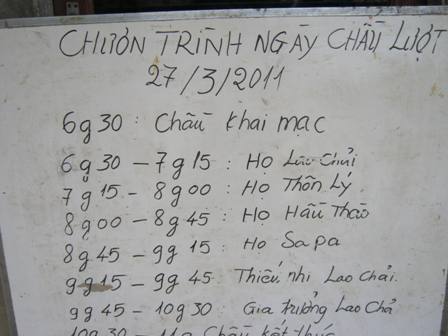 CHƯƠN TRÌNH NGÀY CHẦU LƯỢT
27/3/2011
6g30 : Chầu khai mạc
6g30 – 7g15 : Họ Lao Chải
7g15 – 8g00 : Họ Thôn Lý
8g00 – 8g45 : Họ Hầu Thào
8g45 – 9g15 : Họ Sapa
9g15 – 9g45 Thiếu nhi Lao Chải.
9g45 – 10g30 : Gia trưởng Lao Chả
10g30 – 11g Chầu kết thúc